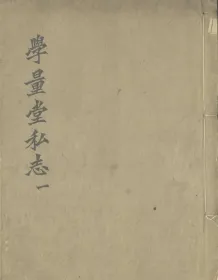 學量堂私志一